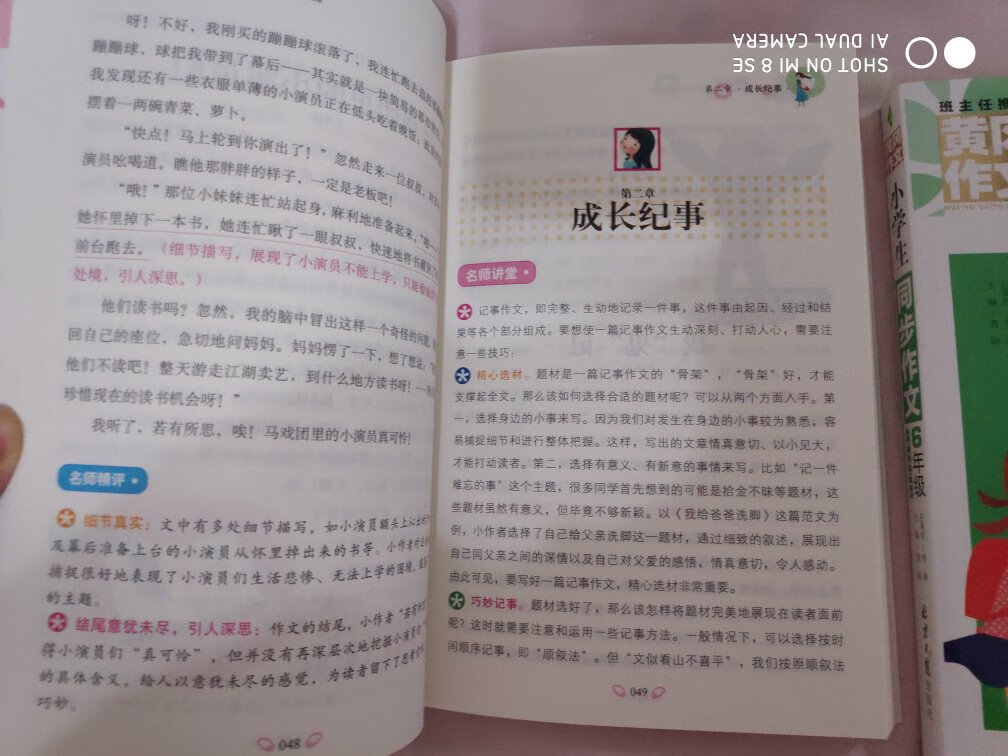 呀！不好，我刚买的蹦蹦球滚落了，我连忙跑去追赶
蹦蹦球，球把我带到了幕后——其实就是一块简易的幕布
我发现还有一些衣服单薄的小演员正在低头吃着晚饭：
摆着一两碗青菜、萝卜。
“快点！马上轮到你演出了！”忽然走来一位叔叔，
演员吆喝道。瞧他那胖胖的样子，一定是老板吧！
“哦！”那位小妹妹连忙站起身，麻利地准备起来。
她怀里掉下一本书，她连忙瞅了一眼叔叔，快速地将书藏到
前台跑去。（细节描写，展现了小演员不能上学，只能
处境，引人深思。）
他们读书吗？忽然，我的脑中冒出这样一个奇怪的问题，
回自己的座位，急切地问妈妈。妈妈愣了一下，想了想说：
他们不读吧！整天游走江湖卖艺，到什么地方读书呀！
珍惜现在的读书机会呀！”
我听了，若有所思，唉！马戏团里的小演员真可怜！
名师精评
细节真实：文中有多处细节描写，如小演员额头上沁出
及幕后准备上台的小演员从怀里掉出来的书等。小作者对
捕捉很好地表现了小演员们生活悲惨、无法上学的困境，
的主题。
结尾意犹未尽，引人深思：作文的结尾，小作者“若有所思”
得小演员们“真可怜”，但并没有再深层次地挖掘小演员们
的具体含义，给人以意犹未尽的感觉，为读者留下了思考
巧妙。
048
第二章·成长纪事
第二章
成长纪事
名师讲堂
记事作文，即完整、生动地记录一件事，这件事由起因、经过和结
果等各个部分组成。要想使一篇记事作文生动深刻、打动人心，需要注
意一些技巧：
精心选材。题材是一篇记事作文的“骨架”，“骨架”好，才能
支撑起全文。那么该如何选择合适的题材呢？可以从两个方面入手。第
一，选择身边的小事来写。因为我们对发生在身边的小事较为熟悉，容
易捕捉细节和进行整体把握。这样，写出的文章情真意切、以小见大，
才能打动读者。第二，选择有意义、有新意的事情来写。比如“记一件
难忘的事”这个主题，很多同学首先想到的可能是拾金不昧等题材，这
些题材虽然有意义，但毕竟不够新颖。以《我给爸爸洗脚》这篇范文为
例，小作者选择了自己给父亲洗脚这一题材，通过细致的叙述，展现出
自己同父亲之间的深情以及自己对父爱的感悟，情真意切，令人感动。
由此可见，要写好一篇记事作文，精心选材非常重要。
巧妙记事。题材选好了，那么该怎样将题材完美地展现在读者面前
呢？这时就需要注意和运用一些记事方法。一般情况下，可以选择按时
间顺序记事，即“顺叙法”。但“文似看山不喜平”，我们按照顺叙法
049
SHOT ON MI 8 SE
AI DUAL CAMERA
班主任推
黄冈
作文
小学生
同步作文
6年级